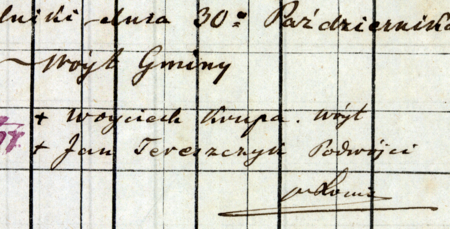 dnia 30º Października
Wóyt Gminy
+ Woyciech Krupa. Wóyt
+ Jan Tereszczyk Podwójci